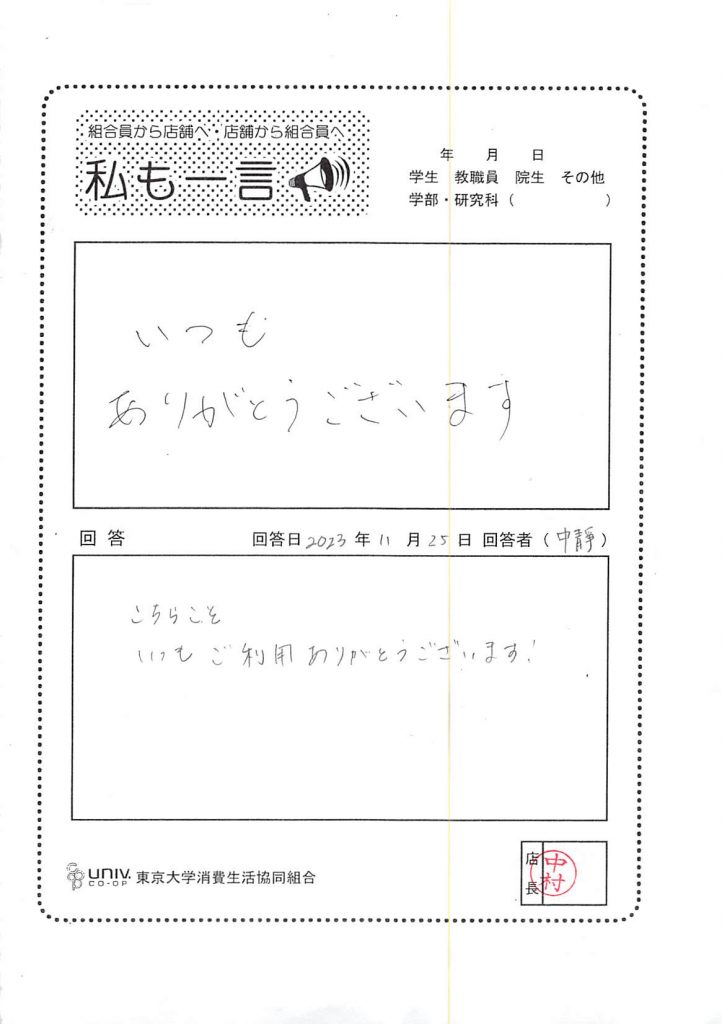 組合員から店舗へ・店舗から組合員へ
私も一言
年 月 日
学生 教職員 院生 その他
学部・研究科（ ）
いつも
ありがとうございます
回答 回答日 2023 年 11 月 25 日 回答者（中靜）
こちらこそ
いつもご利用ありがとうございます!
UNIV. CO-OP 東京大学消費生活協同組合
店長
中村